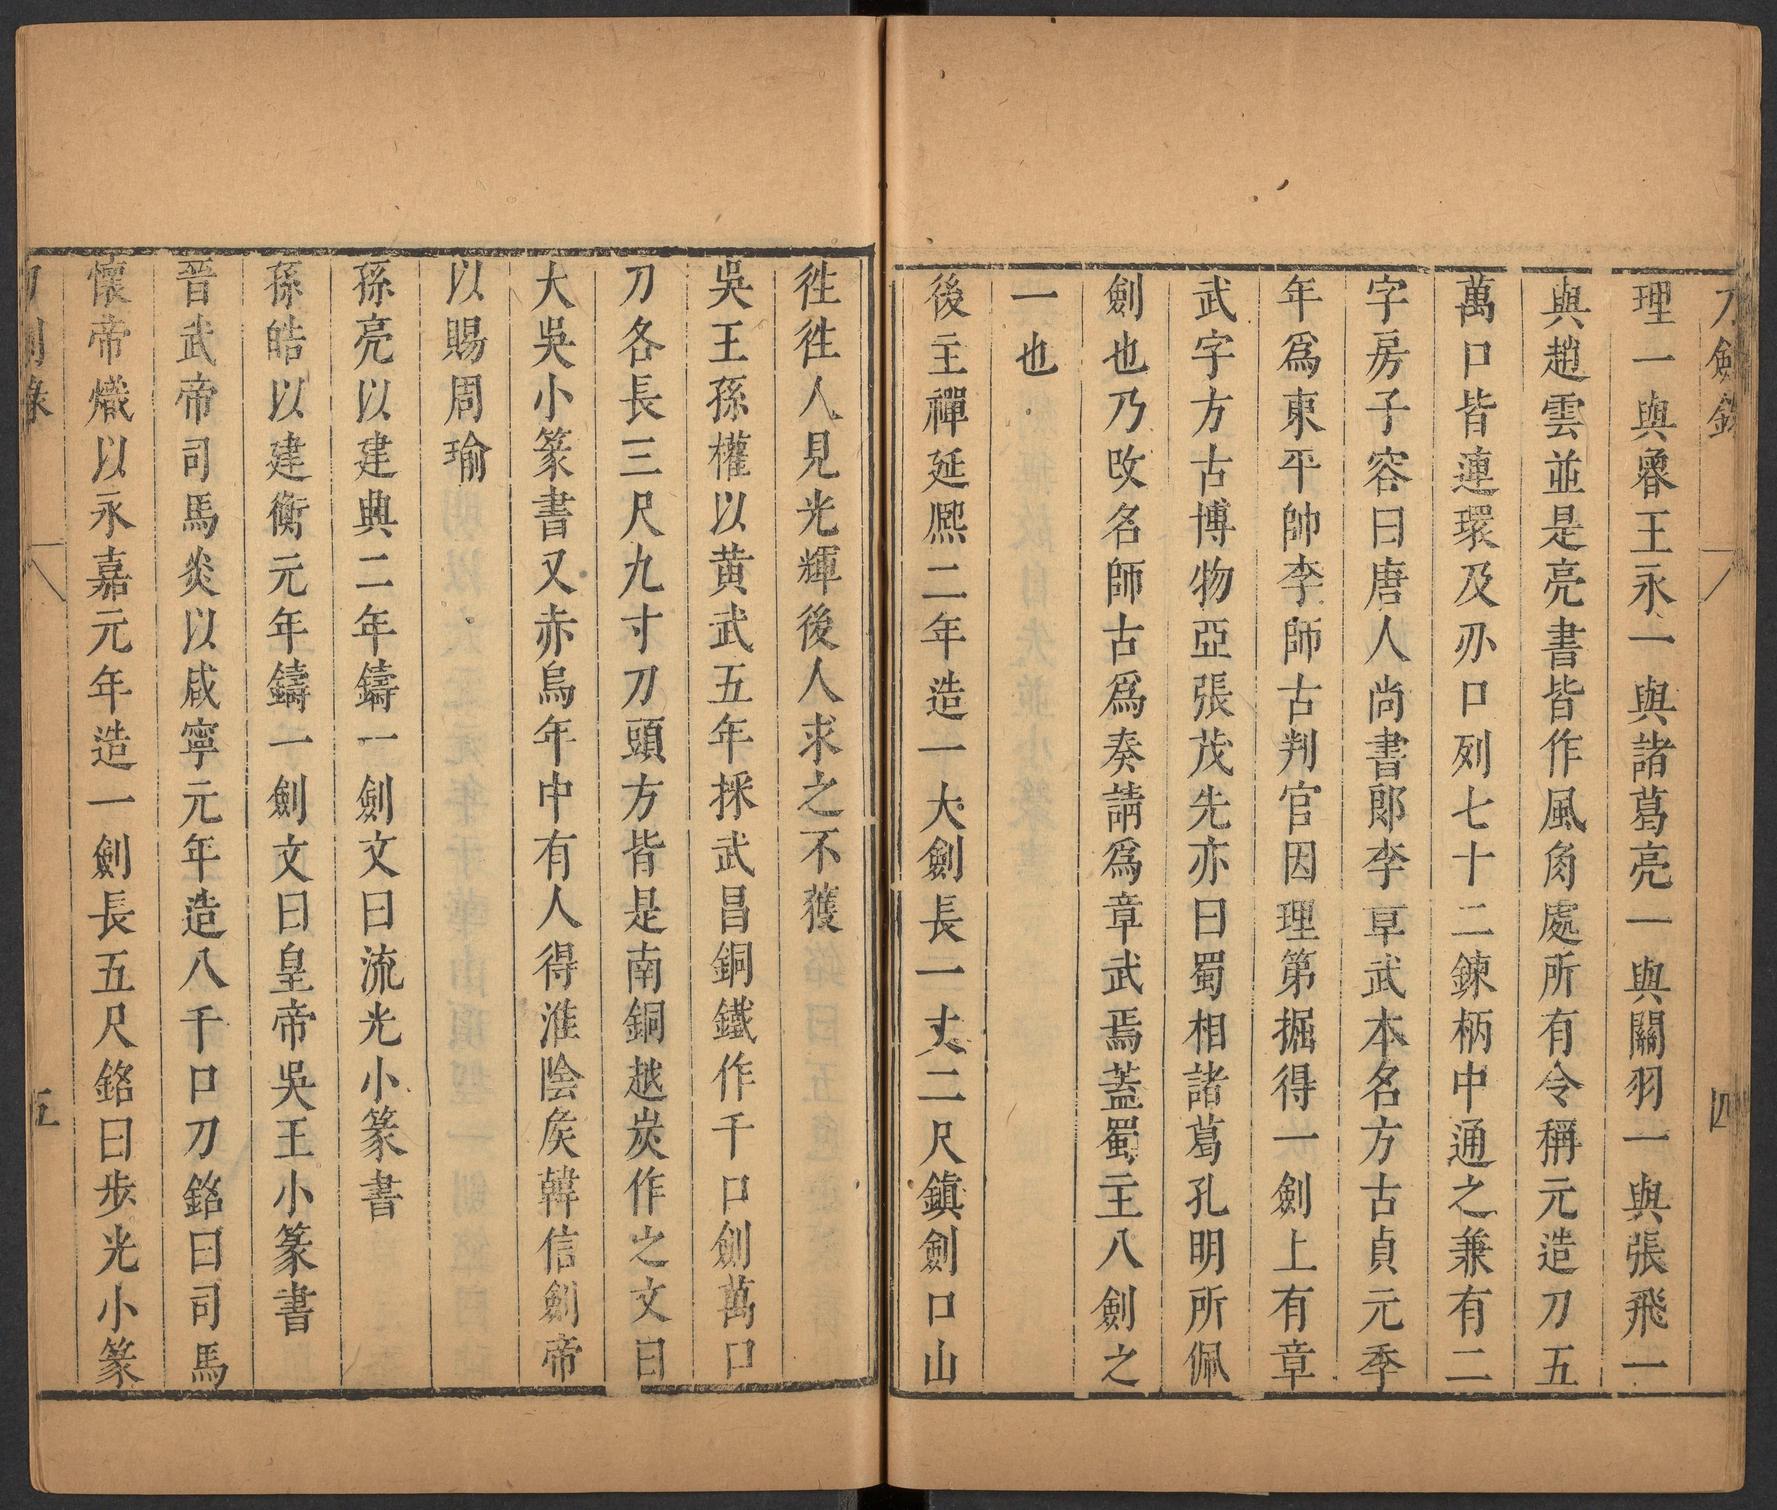 刀劍錄 四
理一與魯王永一與諸葛亮一與關羽一與張飛一
與趙雲並是亮書皆作風角處所有令稱元造刀五
萬口皆連環及刅口列七十二鍊柄中通之兼有二
字房子容曰唐人尚書郎李章武本名方古貞元季
年爲東平帥李師古判官因理第掘得一劍上有章
武字方古博物亞張茂先亦曰蜀相諸葛孔明所佩
劍也乃改名師古爲奏請爲章武焉蓋蜀主八劍之
一也
後主禪延熈二年造一大劍長一丈二尺鎮劍口山
徃徃人見光輝後人求之不獲
吳王孫權以黄武五年採武昌銅鐵作千口劍萬口
刀各長三尺九寸刀頭方皆是南銅越炭作之文曰
大吳小篆書又赤烏年中有人得淮陰矦韓信劍帝
以賜周瑜
孫亮以建興二年鑄一劍文曰流光小篆書
孫皓以建衡元年鑄一劍文曰皇帝吳王小篆書
晉武帝司馬炎以咸寧元年造八千口刀銘曰司馬
懷帝熾以永嘉元年造一劍長五尺銘曰步光小篆
刀劍錄 五